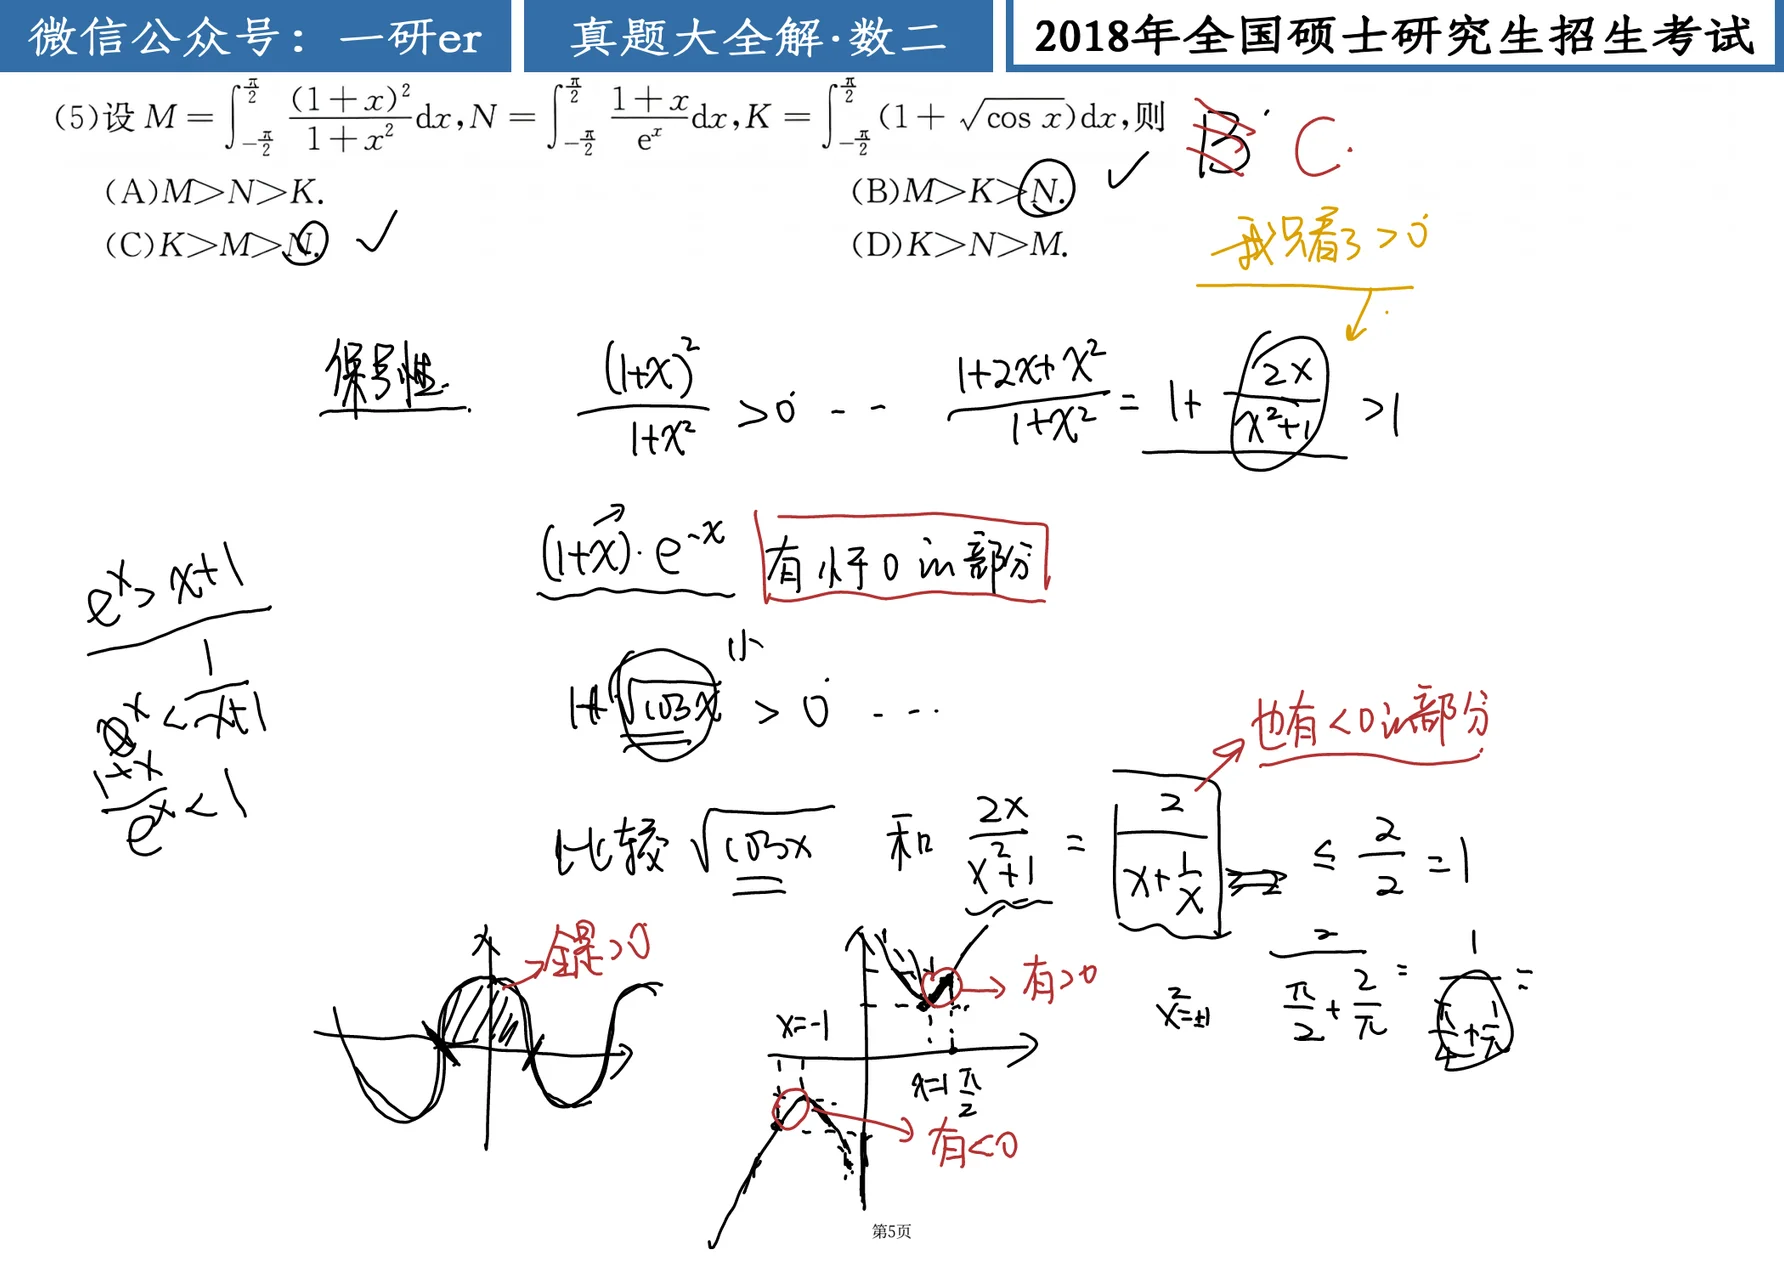 微信公众号：一研er 真题大全解·数二 2018年全国硕士研究生招生考试
(5)设 M = ∫_{-π/2}^{π/2} (1+x)²/(1+x²) dx, N = ∫_{-π/2}^{π/2} (1+x)/eˣ dx, K = ∫_{-π/2}^{π/2} (1+√cos x)dx, 则 B C.
(A)M>N>K. (B)M>K>N. ✓
(C)K>M>N. ✓ (D)K>N>M.
我只看了>0
保号性. (1+x)²/(1+x²) >0 -- (1+2x+x²)/(1+x²) = 1+ 2x/(x²+1) >1
(1+x)·e^{-x} 有小于0的部分
eˣ> x+1
小
1+√cosx > 0 ...
eˣ < 1/(x+1)
(1+x)/eˣ < 1
也有<0的部分
比较 √cosx 和 2x/(x²+1) = 2/(x+1/x) ≤ 2/2 =1
全是>0
有>0
x=-1
x=1 π/2
有<0
x²=±1
2/(π/2+2/π) = 1/(π/4+1/π) =
第5页